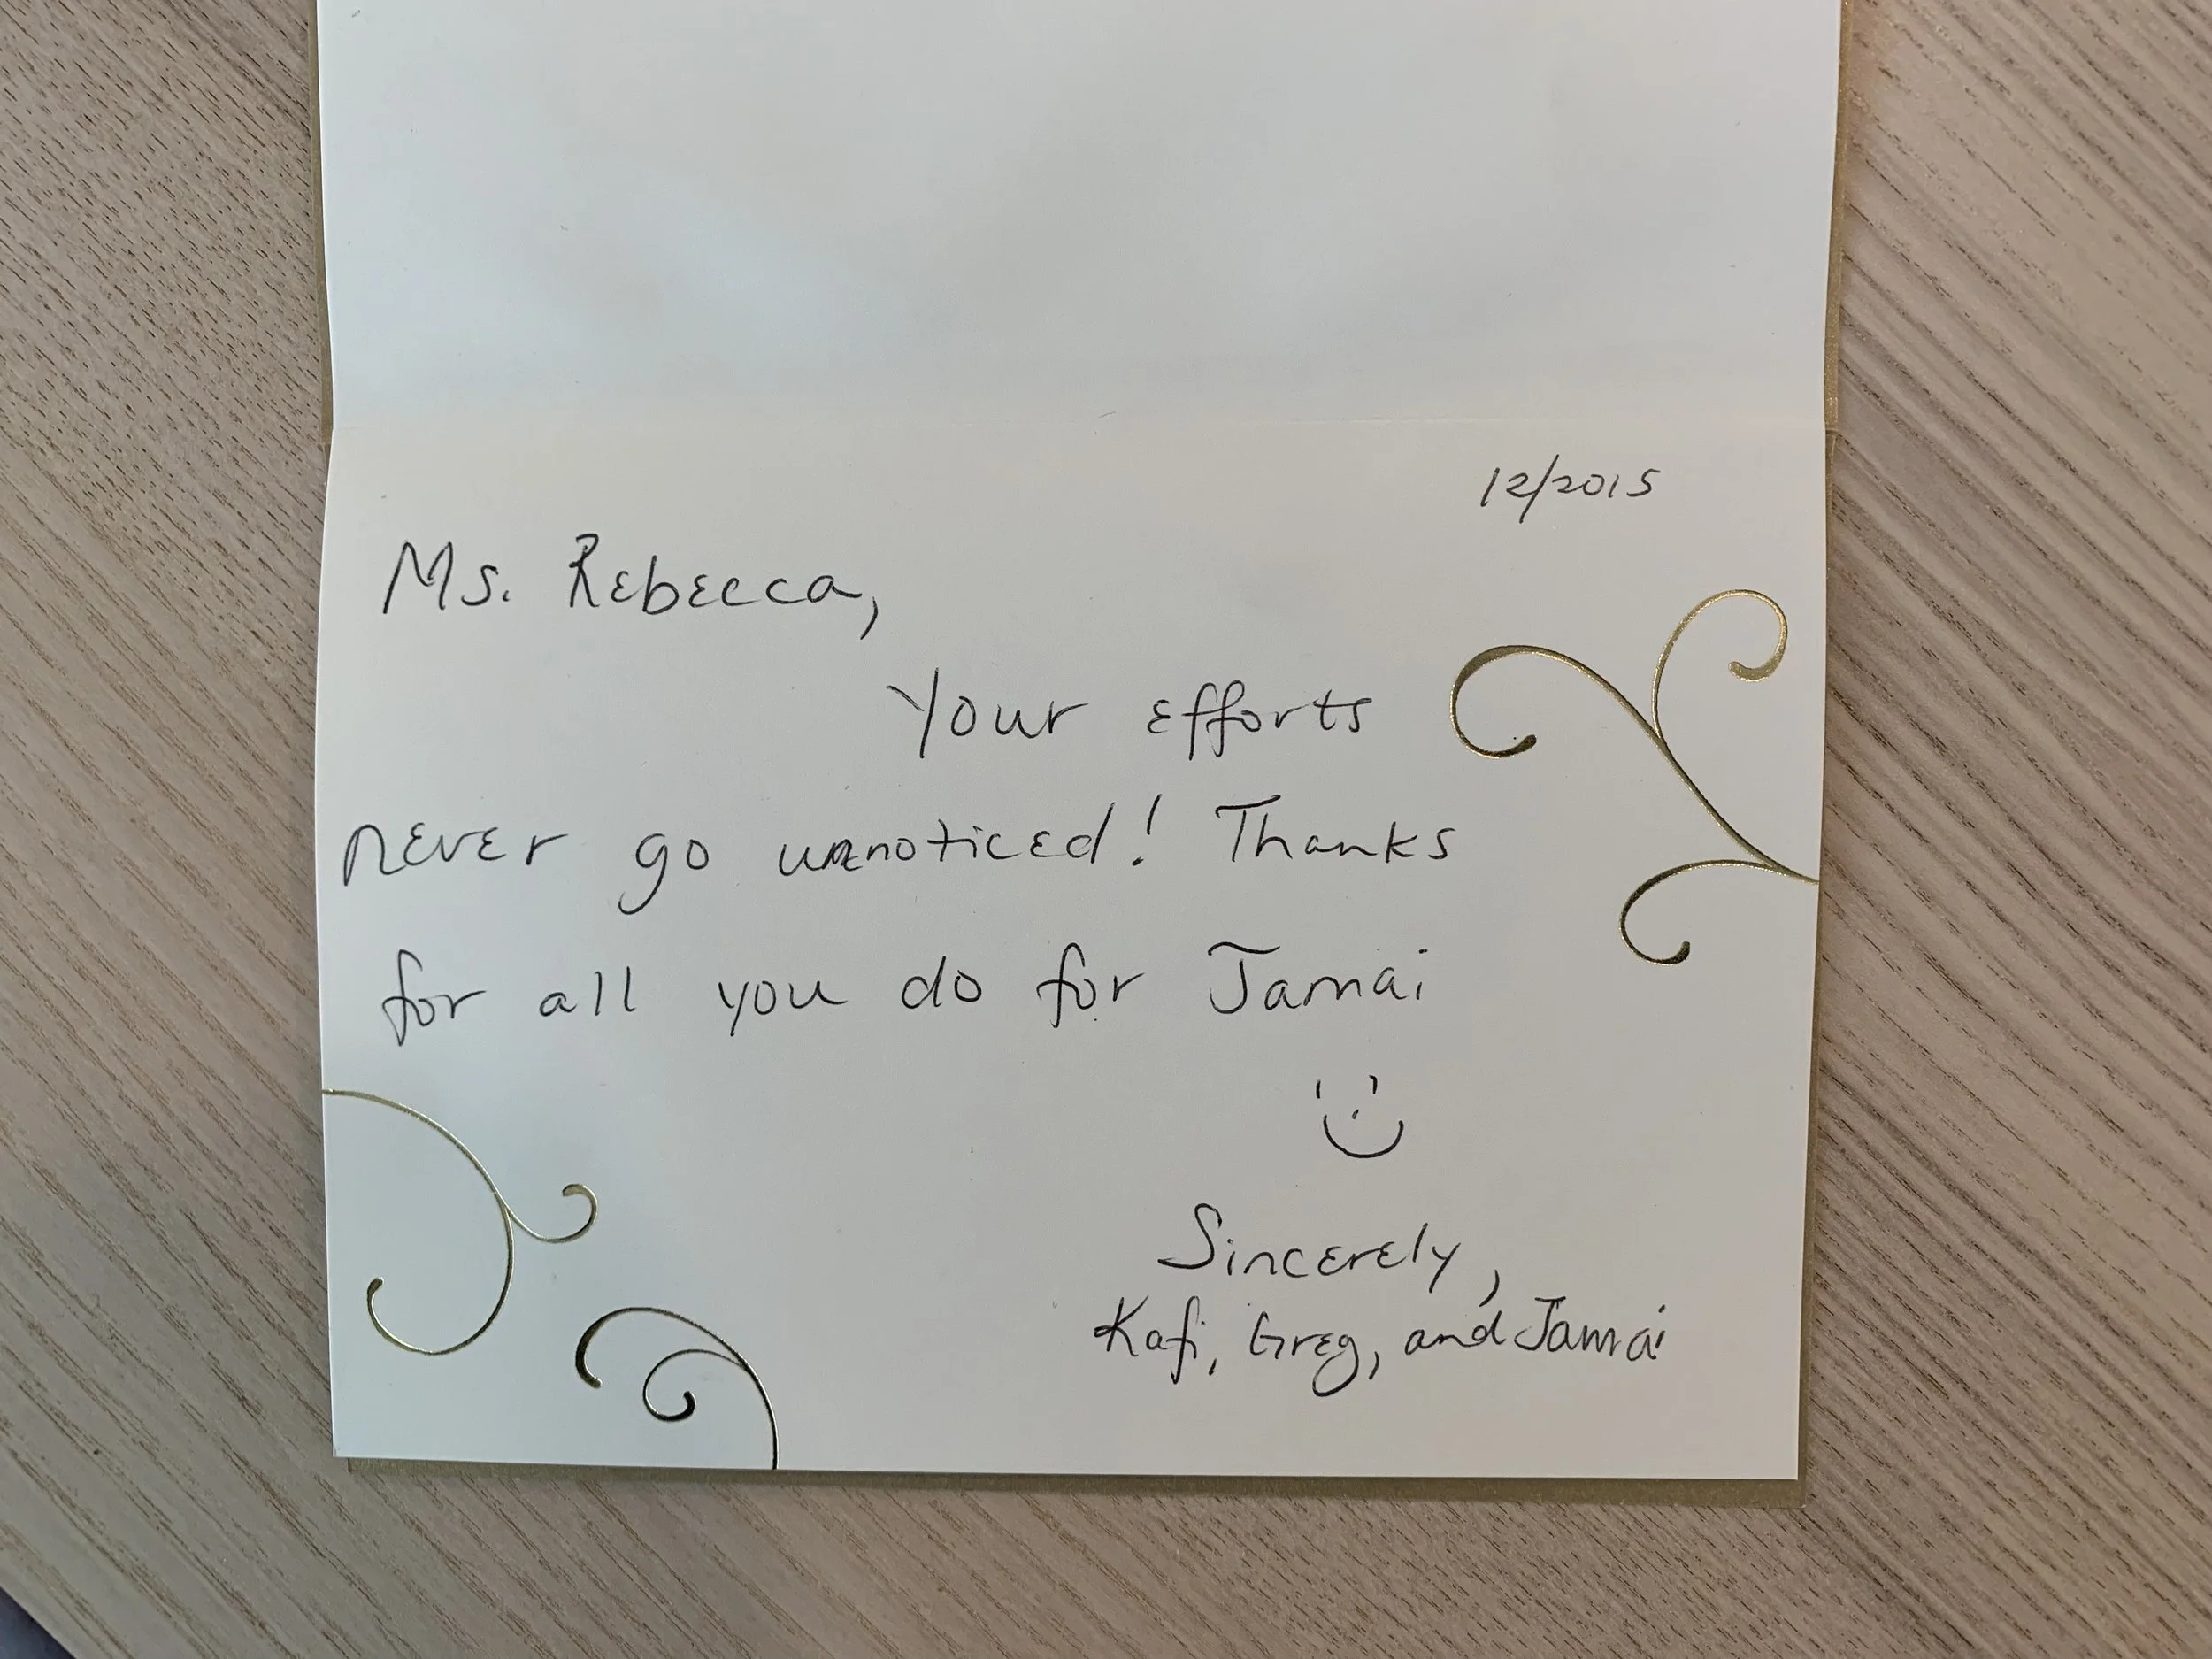 12/2015
Ms. Rebecca,
Your efforts
never go unnoticed! Thanks
for all you do for Jamai
Sincerely,
Kafi, Greg, and Jamai